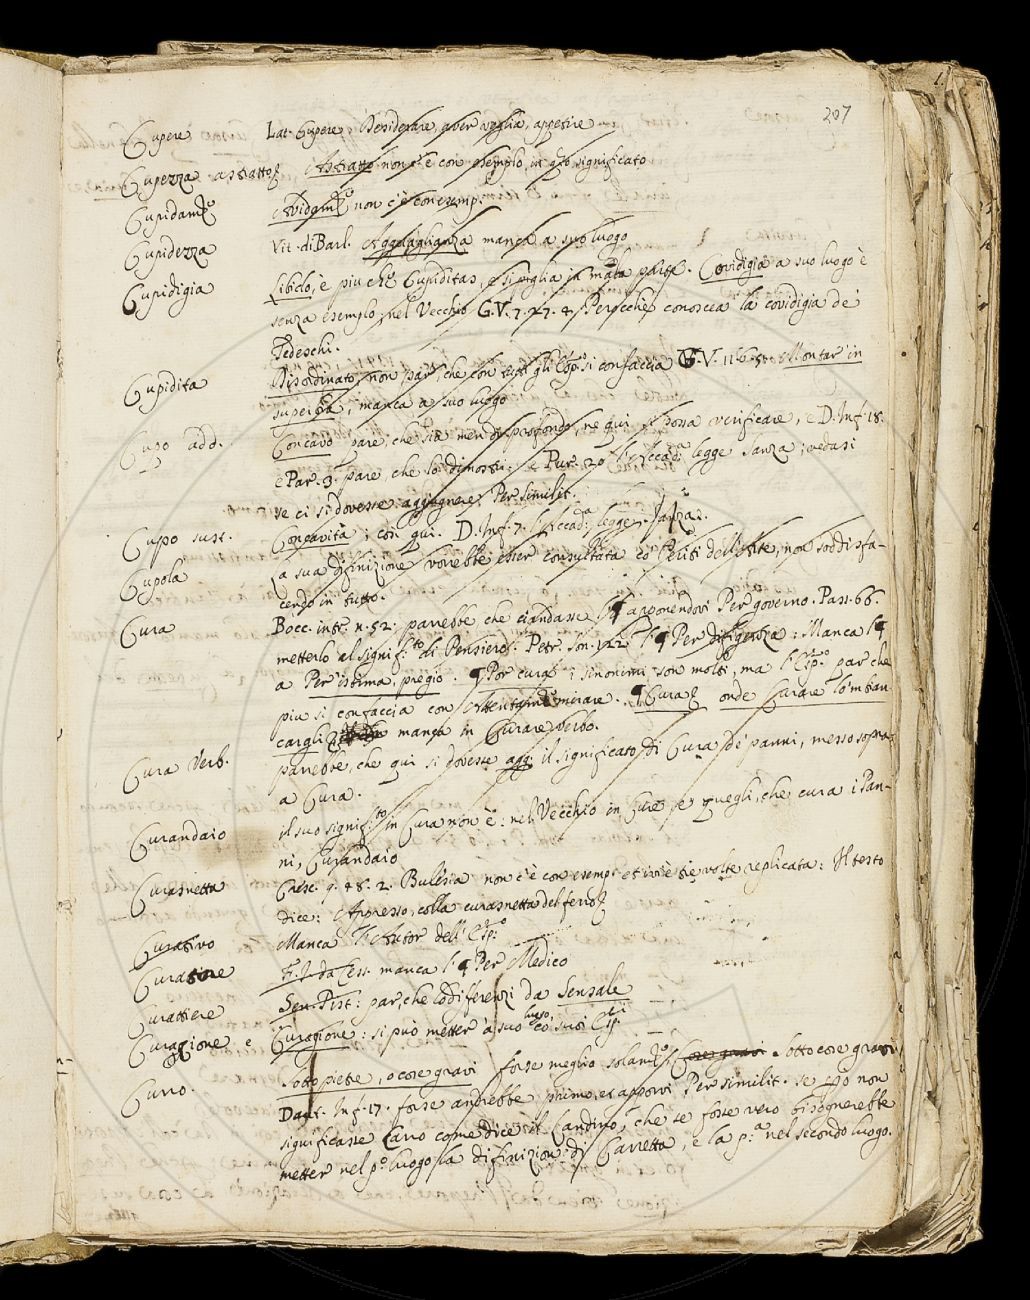 207
Cupere Lat. Cupere, Desiderare, aver voglia, appetire
Cupezza astratto Astratto non c'è con esemplo, in q.to significato
Cupidam.te Avidam.te non c'è con esemp.
Cupidezza Vit. di Barl. Aggavaglianza manca a suo luogo
Cupidigia Libido, è piu che Cupiditas, e si piglia in mala parte. Covidigia a suo luogo è
senza esemplo, nel Vecchio G.V. 7. 27. 2. Perocchè conoscea la covidigia de'
Tedeschi.
Cupidità Disordinato, non par, che con tutti gli Esp. si confaccia G.V. 11. Montar in
superbia, manca a suo luogo
Cupo add. Concavo pare, che sia men di profondo, ne qui si possa verificare, e D. Inf. 18.
e Par. 3. pare, che lo dimostri: e Pur. 20 l'Accad.a legge Sanza; vedasi
se ci si dovesse aggiugnere Per similit.
Cupo sust. Concavità; così qui. D. Inf. 7. l'Accad.a legge, Sanza.
Cupola La sua difinizione vorrebbe esser consultata co' Periti dell'Arte, non soddisfa-
cendo in tutto.
Cura Bocc. intr. n. 52: parrebbe che ci andasse l'¶ apponendovi Per governo. Pass. 66.
metterlo al signif.to di Pensiero. Petr. Son. 122 l'¶ Per diligenza: Manca l'¶
a Per istima, pregio. ¶ Por cura: i sinonimi son molti, ma l'Esp.o par che
piu si confaccia con Attentam.te mirare. ¶ Cura onde Curare lo'mban-
cargli manca in Curare verbo.
Cura Verb. parrebbe, che qui si dovesse agg. il significato di Cura de' panni, messo sopra
a Cura.
Curandaio il suo signif.to in Cura non è: nel Vecchio in Cura è quegli, che cura i Pan-
ni, Curandaio
Curasnetta Cresc. 9. 48. 2. Bulesia non c'è con esemp. et ivi è tre volte replicata: Il testo
dice: Appresso, colla curasnetta del ferro
Curativo Manca l'Autor dell'Esp.o
Curatore Fr. J. da Cess. manca l'¶ Per Medico
Curattiere Sen. Pist: par, che lo differenzi da Sensale
Curazione e Curagione: si può metter a suo luogo, co' suoi Esp.i
Curro. Sotto pietre, o cose gravi forse meglio solam.te Sotto cose gravi
Dant. Inf. 17. forse andrebbe primo, et apporvi Per similit. se p.o non
significasse Carro come dice il Landino, che se fosse vero bisognerebbe
metter nel p.o luogo la difinizion. di Carretta, e la p.a nel secondo luogo.